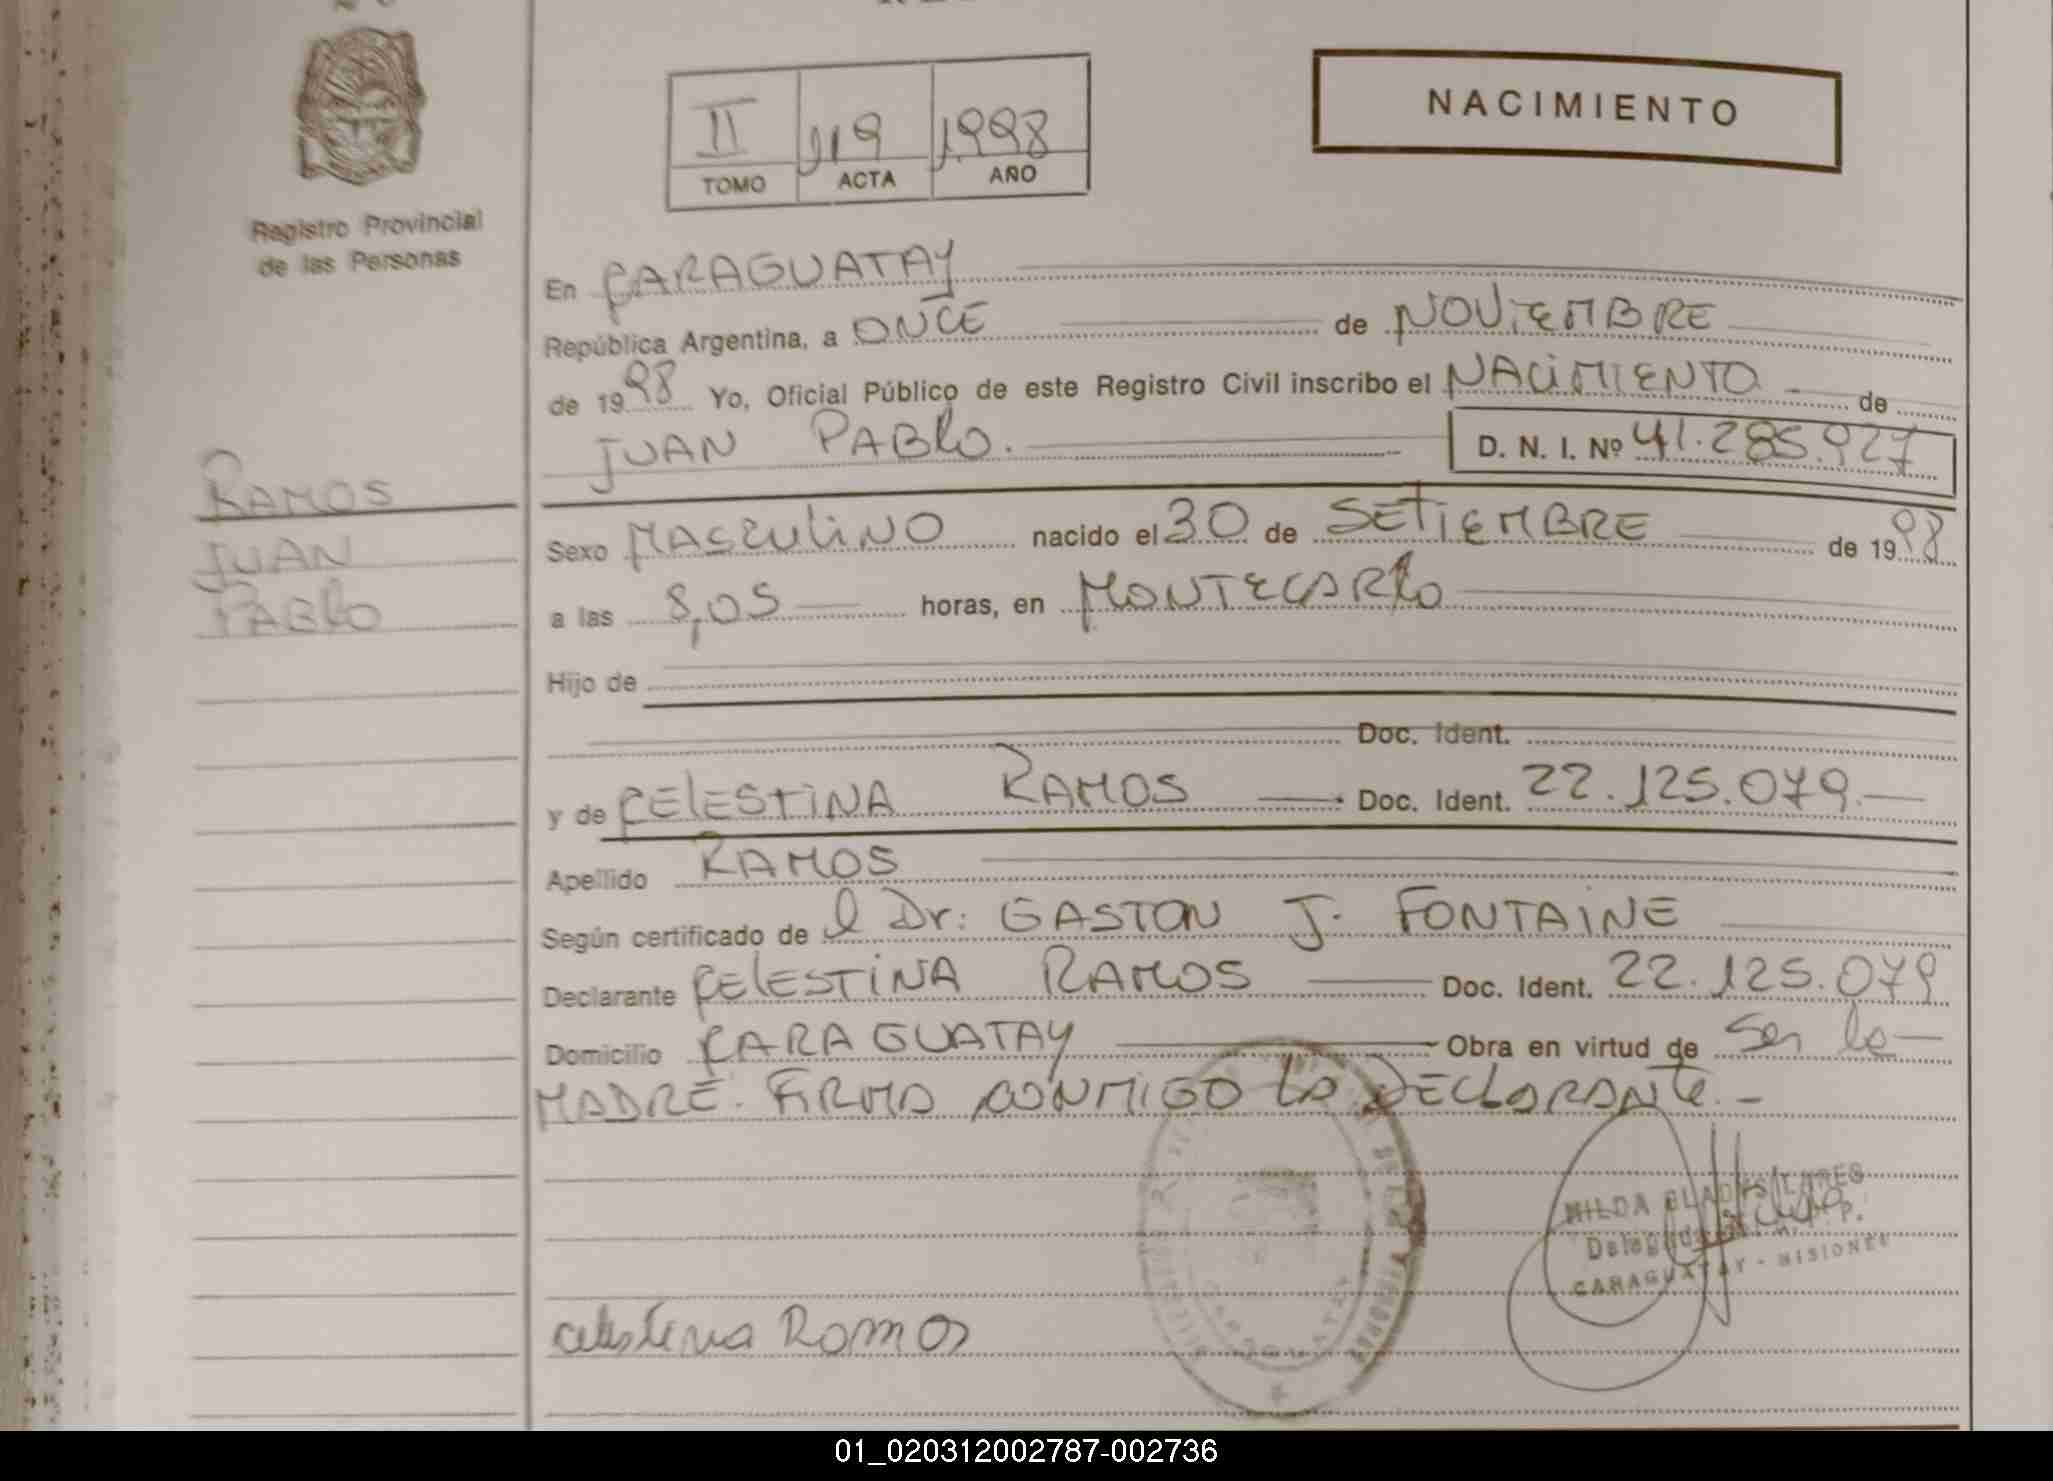 Registro Provincial
de las Personas
II 119 1998
TOMO ACTA AÑO
NACIMIENTO
En CARAGUATAY
República Argentina, a ONCE de NOVIEMBRE
de 1998 Yo, Oficial Público de este Registro Civil inscribo el NACIMIENTO de
JUAN PABLO. D. N. I. Nº 41.285.927
RAMOS
JUAN
PABLO
Sexo MASCULINO nacido el 30 de SETIEMBRE de 1998
a las 8,05 horas, en MONTECARLO
Hijo de
Doc. Ident.
y de CELESTINA RAMOS Doc. Ident. 22.125.079.
Apellido RAMOS
Según certificado de el Dr: GASTON J. FONTAINE
Declarante CELESTINA RAMOS Doc. Ident. 22.125.079
Domicilio CARAGUATAY Obra en virtud de ser la
MADRE. FIRMA CONMIGO LA DECLARANTE.-
HILDA GLADYS
CARAGUATAY - MISIONES
CARAGUATAY
celestina Ramos
01_020312002787-002736